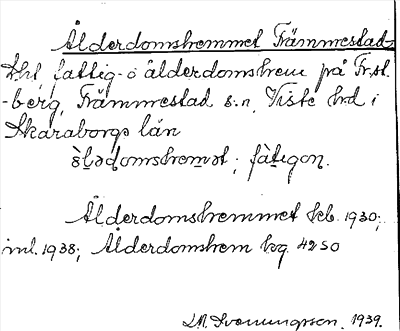 Ålderdomshemmet Främmestad
Det fattig- o ålderdomshem på Fr.st.
-berg, Främmestad s:n, Viste hd i
Skaraborgs län
òlədomshemət ; fàtigon.
Ålderdomshemmet kb. 1930;
ml. 1938; Ålderdomshem hg 4250
1939.